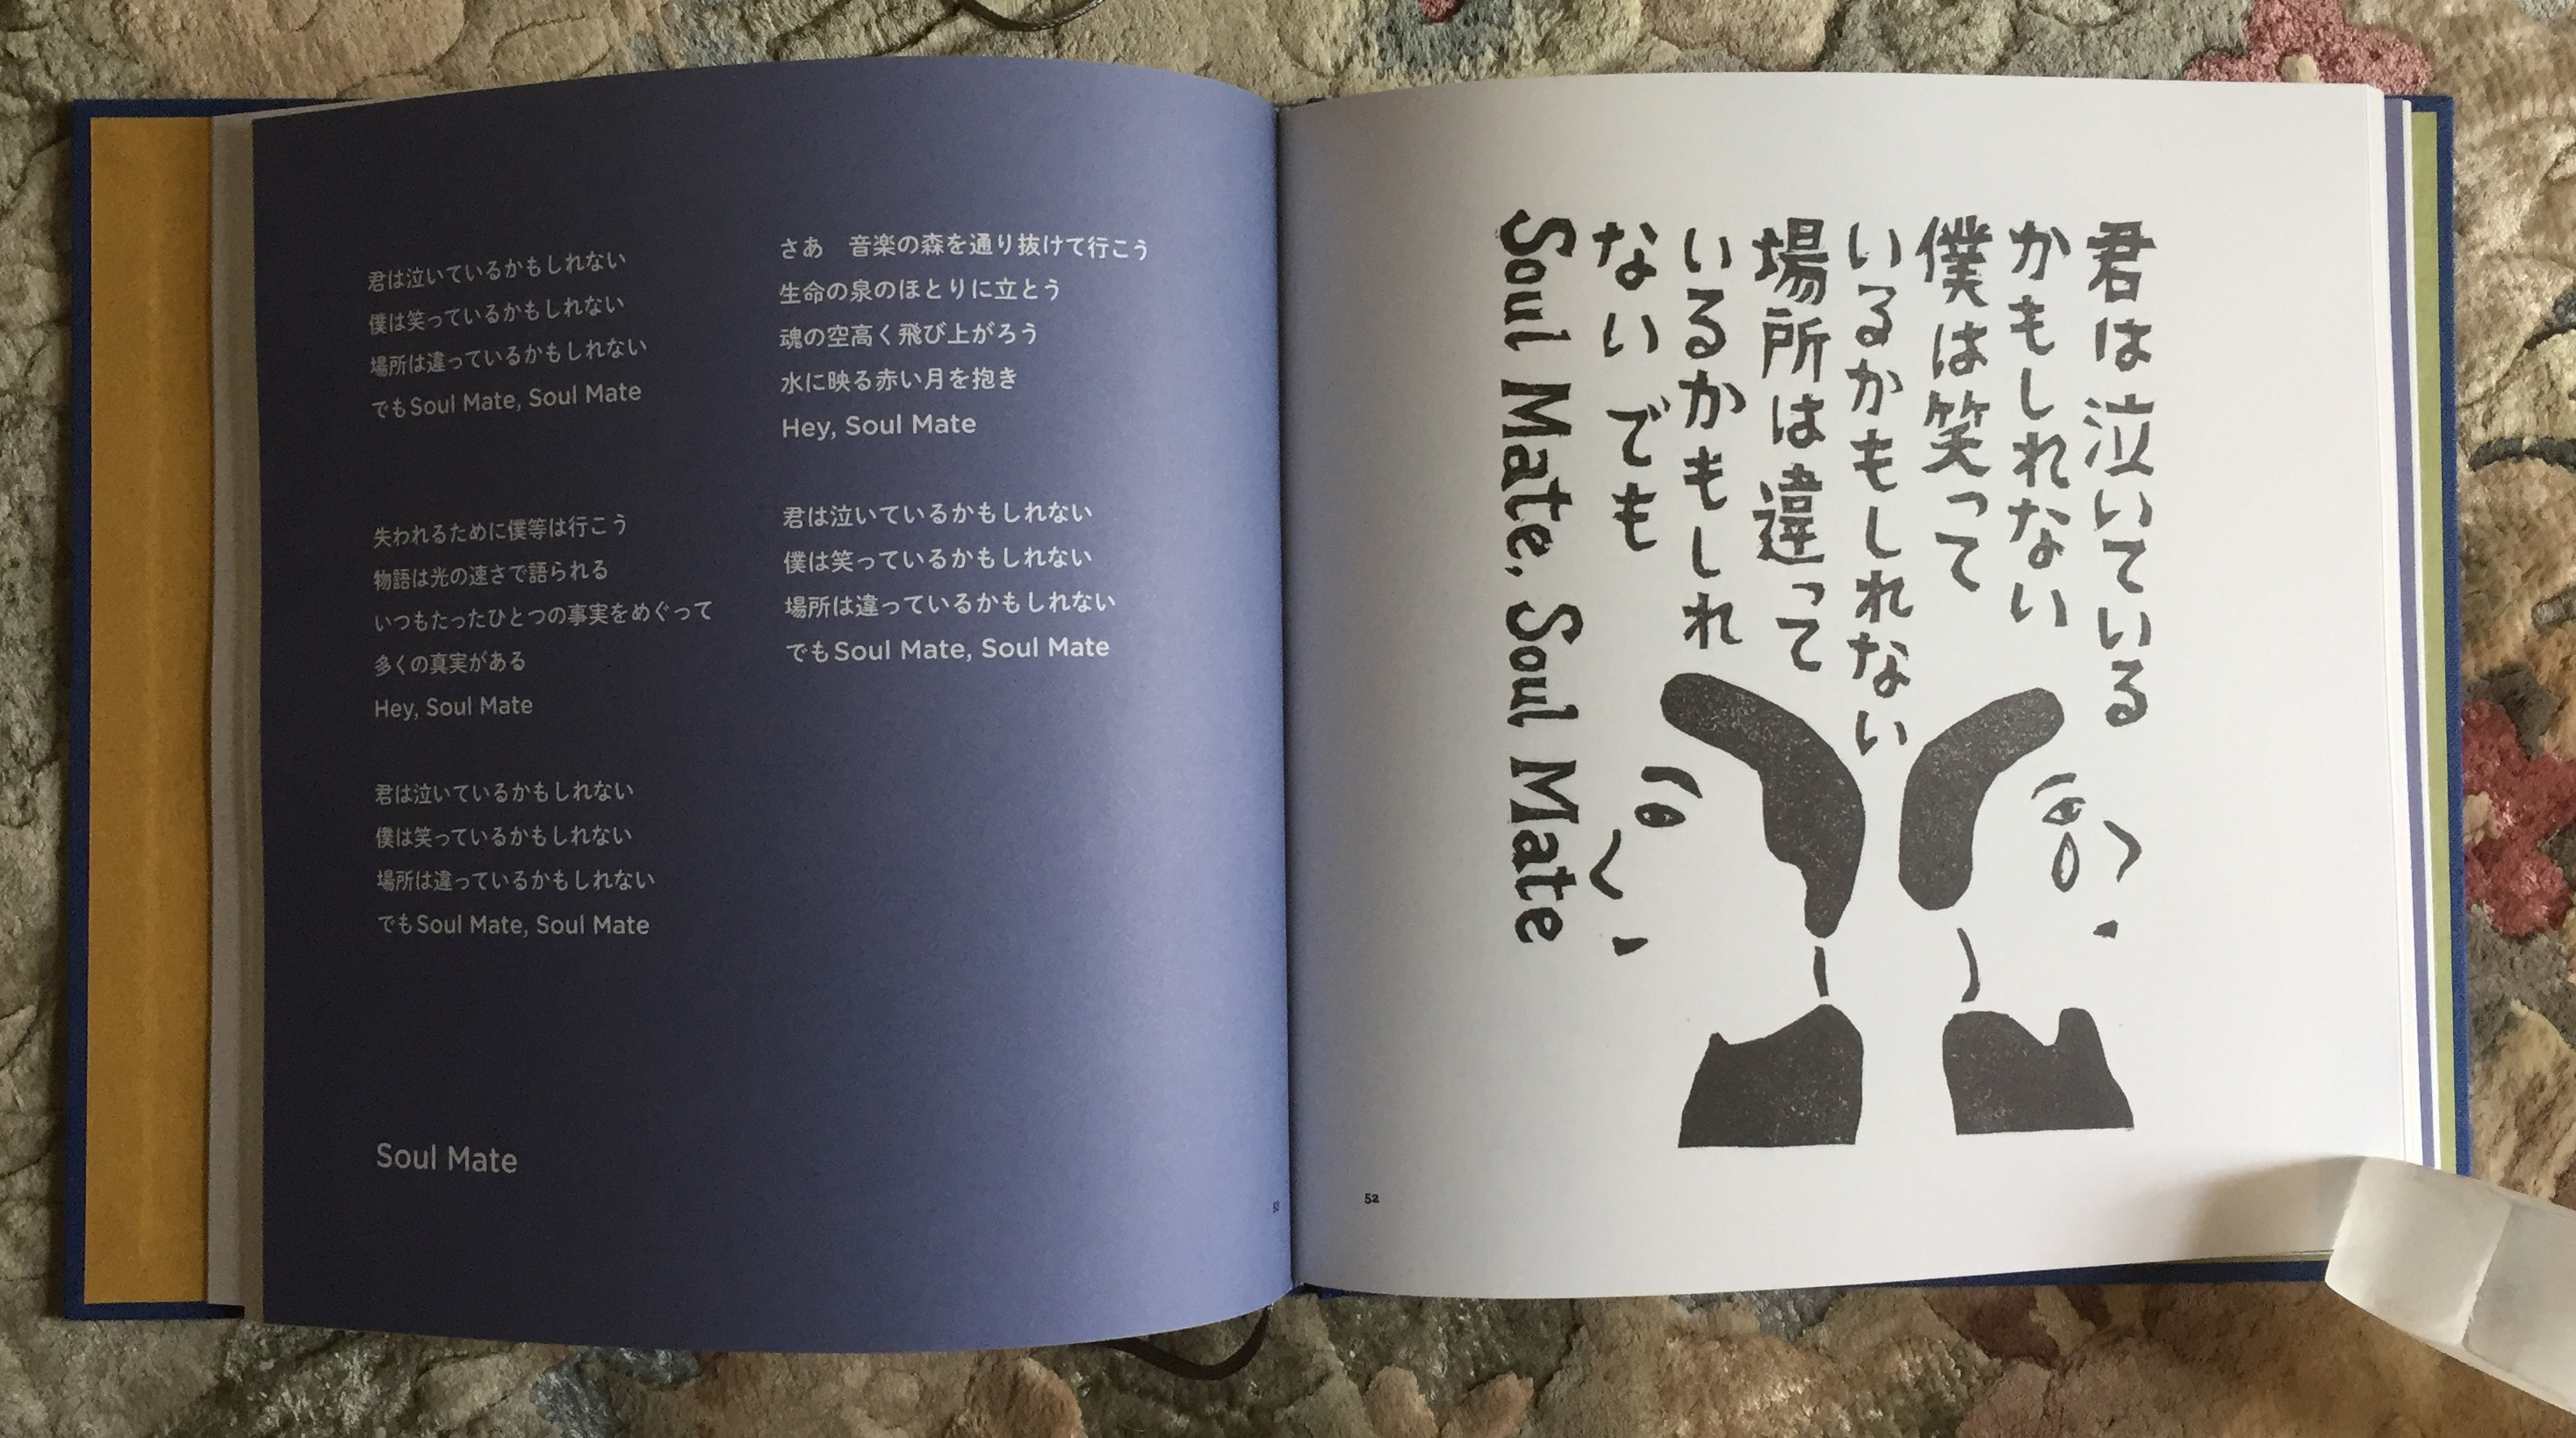 君は泣いているかもしれない
僕は笑っているかもしれない
場所は違っているかもしれない
でもSoul Mate, Soul Mate
失われるために僕等は行こう
物語は光の速さで語られる
いつもたったひとつの事実をめぐって
多くの真実がある
Hey, Soul Mate
君は泣いているかもしれない
僕は笑っているかもしれない
場所は違っているかもしれない
でもSoul Mate, Soul Mate
さあ　音楽の森を通り抜けて行こう
生命の泉のほとりに立とう
魂の空高く飛び上がろう
水に映る赤い月を抱き
Hey, Soul Mate
君は泣いているかもしれない
僕は笑っているかもしれない
場所は違っているかもしれない
でもSoul Mate, Soul Mate
Soul Mate
君は泣いている
かもしれない
僕は笑って
いるかもしれない
場所は違って
いるかもしれ
ない でも
Soul Mate, Soul Mate
52